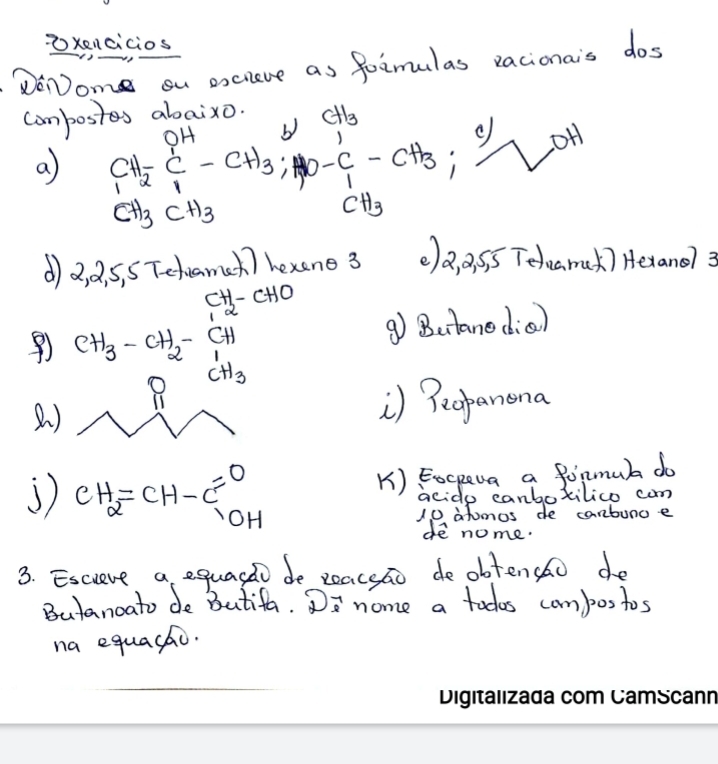 Exercicios
Dê Nome ou escreve as fórmulas racionais dos
compostos abaixo.
a) CH2 - C - CH3; b) HO-C - CH3; c) OH
OH CH3
CH3 CH3 CH3
d) 2,2,5,5 Tetrametil hexeno 3 e) 2,2,5,5 Tetrametil Hexanol 3
CH2 - CHO
f) CH3 - CH2 - CH g) Butanodial
CH3
O
h) i) Propanona
j) CH2 = CH - C =O
OH
K) Escreva a fórmula do
ácido carboxílico com
10 átomos de carbono e
dê nome.
3. Escreve a equação de reacção de obtenção de
Butanoato de Butila. Dê nome a todos compostos
na equação.
Digitalizada com CamScann